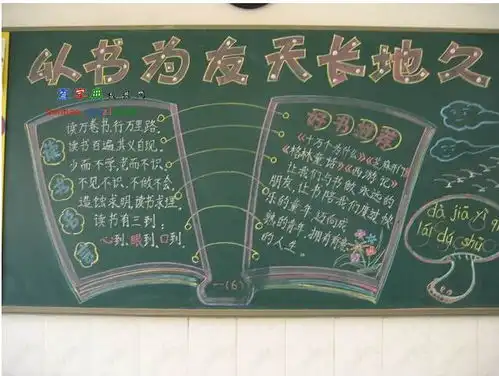 以书为友天长地久
读万卷书,行万里路。
读书百遍,其义自现。
少而不学,老而不识。
不见不识,不做不会。
读书有三到:
心到、眼到、口到。
好书推荐
《十万个为什么》
《格林童话》《西游记》
让我们与书做永远的
朋友,让书陪我们度过快
乐的童年,迈向成
熟的青年,拥有
的人生。
一(6)
dà jiā yì
lái dú shū